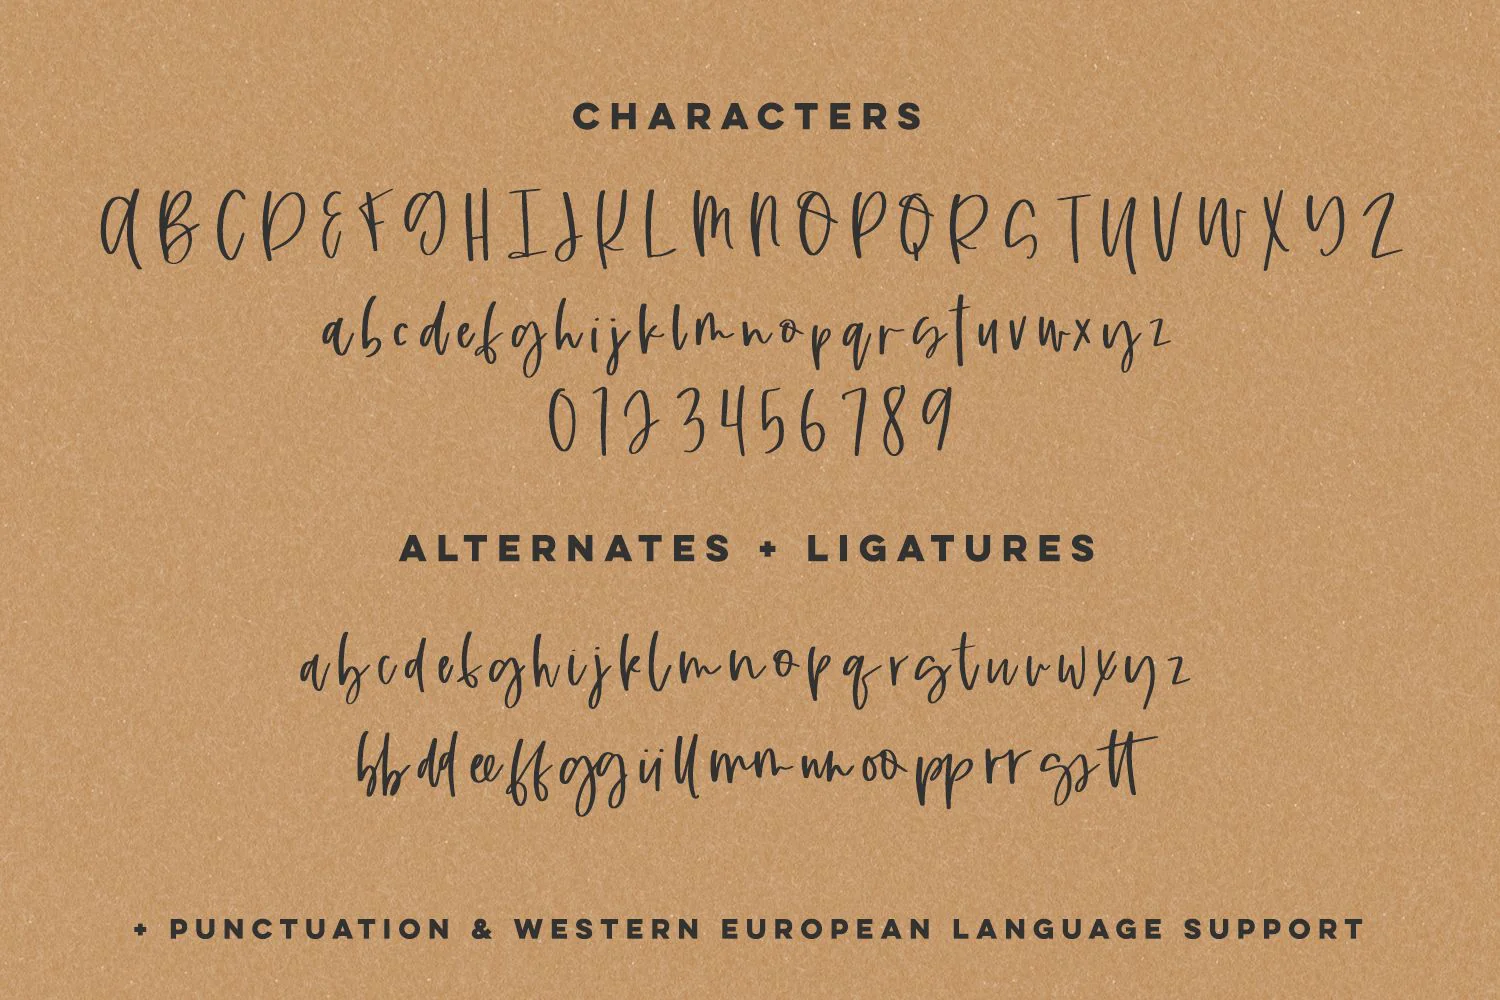 CHARACTERS
ABCDEFGHIJKLMNOPQRSTUVWXYZ
abcdefghijklmnopqrstuvwxyz
0123456789
ALTERNATES + LIGATURES
abcdefghijklmnopqrstuvwxyz
bbddeeffggiillmmnnoopprrsstt
+ PUNCTUATION & WESTERN EUROPEAN LANGUAGE SUPPORT